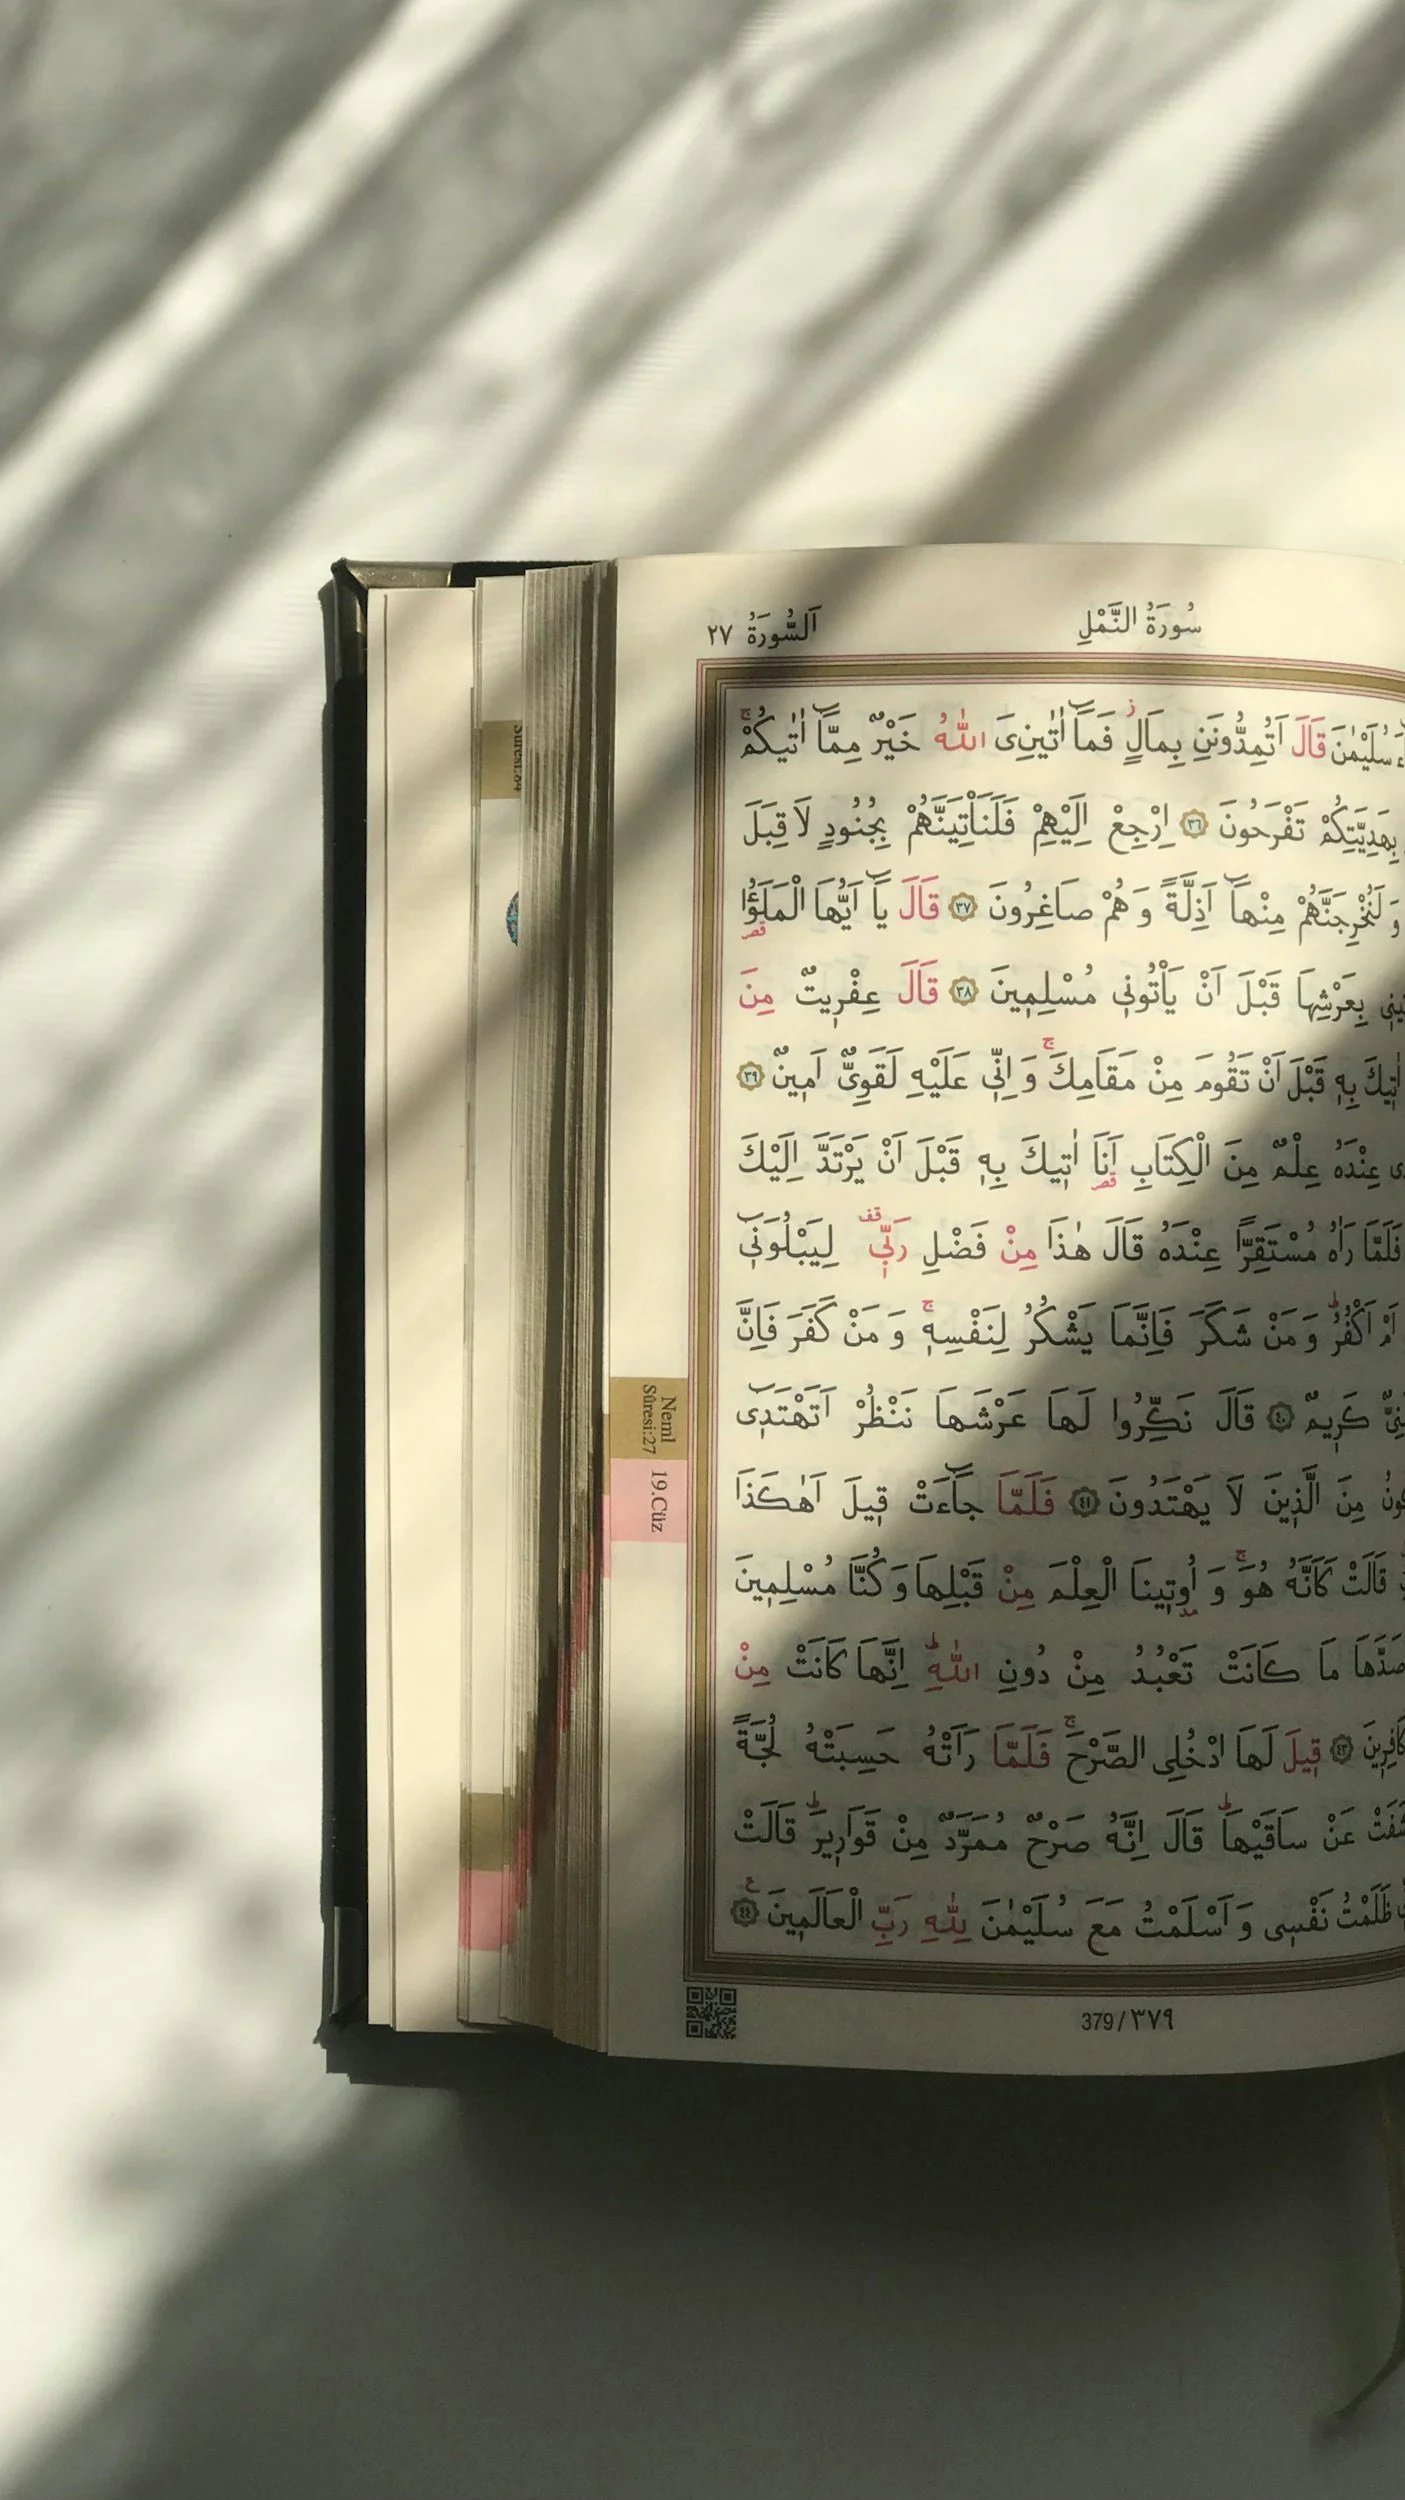 سُورَةُ النَّمْلِ
اَلسُّورَةُ ٢٧
سُلَيْمٰنَ قَالَ اَتُمِدُّونَنِ بِمَالٍ فَمَٓا اٰتٰينِيَ اللّٰهُ خَيْرٌ مِمَّٓا اٰتٰيكُمْ
بِهَدِيَّتِكُمْ تَفْرَحُونَ ٣٦ اِرْجِعْ اِلَيْهِمْ فَلَنَأْتِيَنَّهُمْ بِجُنُودٍ لَا قِبَلَ
وَلَنُخْرِجَنَّهُمْ مِنْهَٓا اَذِلَّةً وَهُمْ صَاغِرُونَ ٣٧ قَالَ يَٓا اَيُّهَا الْمَلَؤُ۬ا
بِعَرْشِهَا قَبْلَ اَنْ يَأْتُونٖى مُسْلِمٖينَ ٣٨ قَالَ عِفْرٖيتٌ مِنَ
اٰتٖيكَ بِهٖ قَبْلَ اَنْ تَقُومَ مِنْ مَقَامِكَ وَاِنّٖى عَلَيْهِ لَقَوِىٌّ اَمٖينٌ ٣٩
عِنْدَهُ عِلْمٌ مِنَ الْكِتَابِ اَنَا اٰتٖيكَ بِهٖ قَبْلَ اَنْ يَرْتَدَّ اِلَيْكَ
فَلَمَّا رَاٰهُ مُسْتَقِرًّا عِنْدَهُ قَالَ هٰذَا مِنْ فَضْلِ رَبّٖى لِيَبْلُوَنٖٓى
اَمْ اَكْفُرُ وَمَنْ شَكَرَ فَاِنَّمَا يَشْكُرُ لِنَفْسِهٖ وَمَنْ كَفَرَ فَاِنَّ
كَرٖيمٌ ٤٠ قَالَ نَكِّرُوا لَهَا عَرْشَهَا نَنْظُرْ اَتَهْتَدٖٓى
مِنَ الَّذٖينَ لَا يَهْتَدُونَ ٤١ فَلَمَّا جَٓاءَتْ قٖيلَ اَهٰكَذَا
قَالَتْ كَاَنَّهُ هُوَ وَاُو۫تٖينَا الْعِلْمَ مِنْ قَبْلِهَا وَكُنَّا مُسْلِمٖينَ
مَا كَانَتْ تَعْبُدُ مِنْ دُونِ اللّٰهِ اِنَّهَا كَانَتْ مِنْ
كَافِرٖينَ ٤٣ قٖيلَ لَهَا ادْخُلِى الصَّرْحَ فَلَمَّا رَاَتْهُ حَسِبَتْهُ لُجَّةً
عَنْ سَاقَيْهَا قَالَ اِنَّهُ صَرْحٌ مُمَرَّدٌ مِنْ قَوَارٖيرَ قَالَتْ
ظَلَمْتُ نَفْسٖى وَاَسْلَمْتُ مَعَ سُلَيْمٰنَ لِلّٰهِ رَبِّ الْعَالَمٖينَ ٤٤
Neml
Sûresi:27
19.Cüz
379/٣٧٩